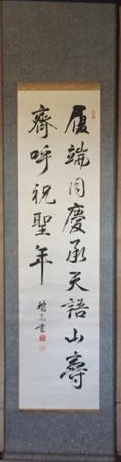 履端同慶承天語山壽
齊呼祝聖年